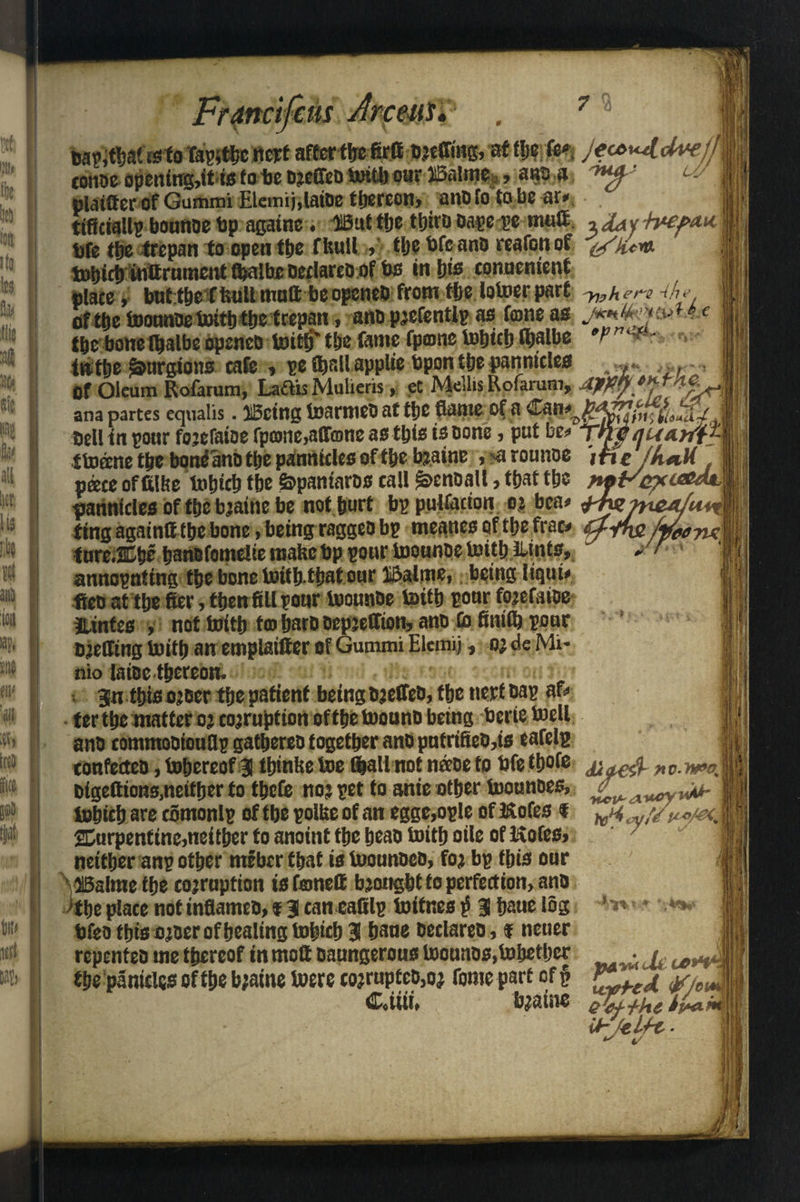 Franciscus Arceus. 7
day, that is to say, the next after the first dressing, at the se-
conde opening, it is to be dressed with our Balme, and a
plaister of Gummi Elemij, laide thereon, and so to be ar-
tificially bounde vp againe. But the third daye ye must
vse the trepan to open the skull, the vse and reason of
which instrument shalbe declared of vs in his conuenient
place, but the skull must be opened from the lower part
of the wounde with the trepan, and presently as soone as
the bone shalbe opened with the same spoone which shalbe
in the Surgions case, ye shall applie vpon the pannicles
of Oleum Rosarum, Lactis Mulieris, et Mellis Rosarum,
ana partes equalis. Being warmed at the flame of a Can-
dell in your foresaide spoone, assoone as this is done, put be-
tweene the bone and the pannicles of the braine, a rounde
peece of silke which the Spaniards call Sendall, that the
pannicles of the braine be not hurt by pulsacion or bea-
ting against the bone, being ragged by meanes of the frac-
ture. The handsomelie make vp your wounde with Lints,
annoynting the bone with that our Balme, being liqui-
fied at the fier, then fill your wounde with your foresaide
Lintes, not with too hard depression, and so finish your
dressing with an emplaister of Gummi Elemij, or de Mi-
nio laide thereon.
In this order the patient being dressed, the next day af-
ter the matter or corruption of the wound being verie well
and commodiously gathered together and putrified, is easely
confected, whereof I thinke we shall not neede to vse those
digestions, neither to these nor yet to anie other woundes,
which are cōmonly of the yolke of an egge, oyle of Roses &
Turpentine, neither to anoint the head with oile of Roses,
neither any other mēber that is wounded, for by this our
Balme the corruption is soonest brought to perfection, and
the place not inflamed, & I can easily witnes yͭ I haue lōg
vsed this order of healing which I haue declared, & neuer
repented me thereof in most daungerous wounds, whether
the pānicles of the braine were corrupted, or some part of yͤ
C.iiii. braine
second dres
3 day trepan
wher the
opned
apply on the
pannicles
The quant
itie shall
not excede
the measure
of the spoone
digest no
the brain
it selfe.